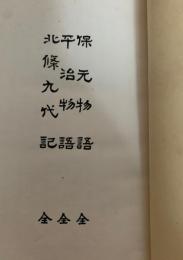 保元物語 全
平治物語 全
北條九代記 全